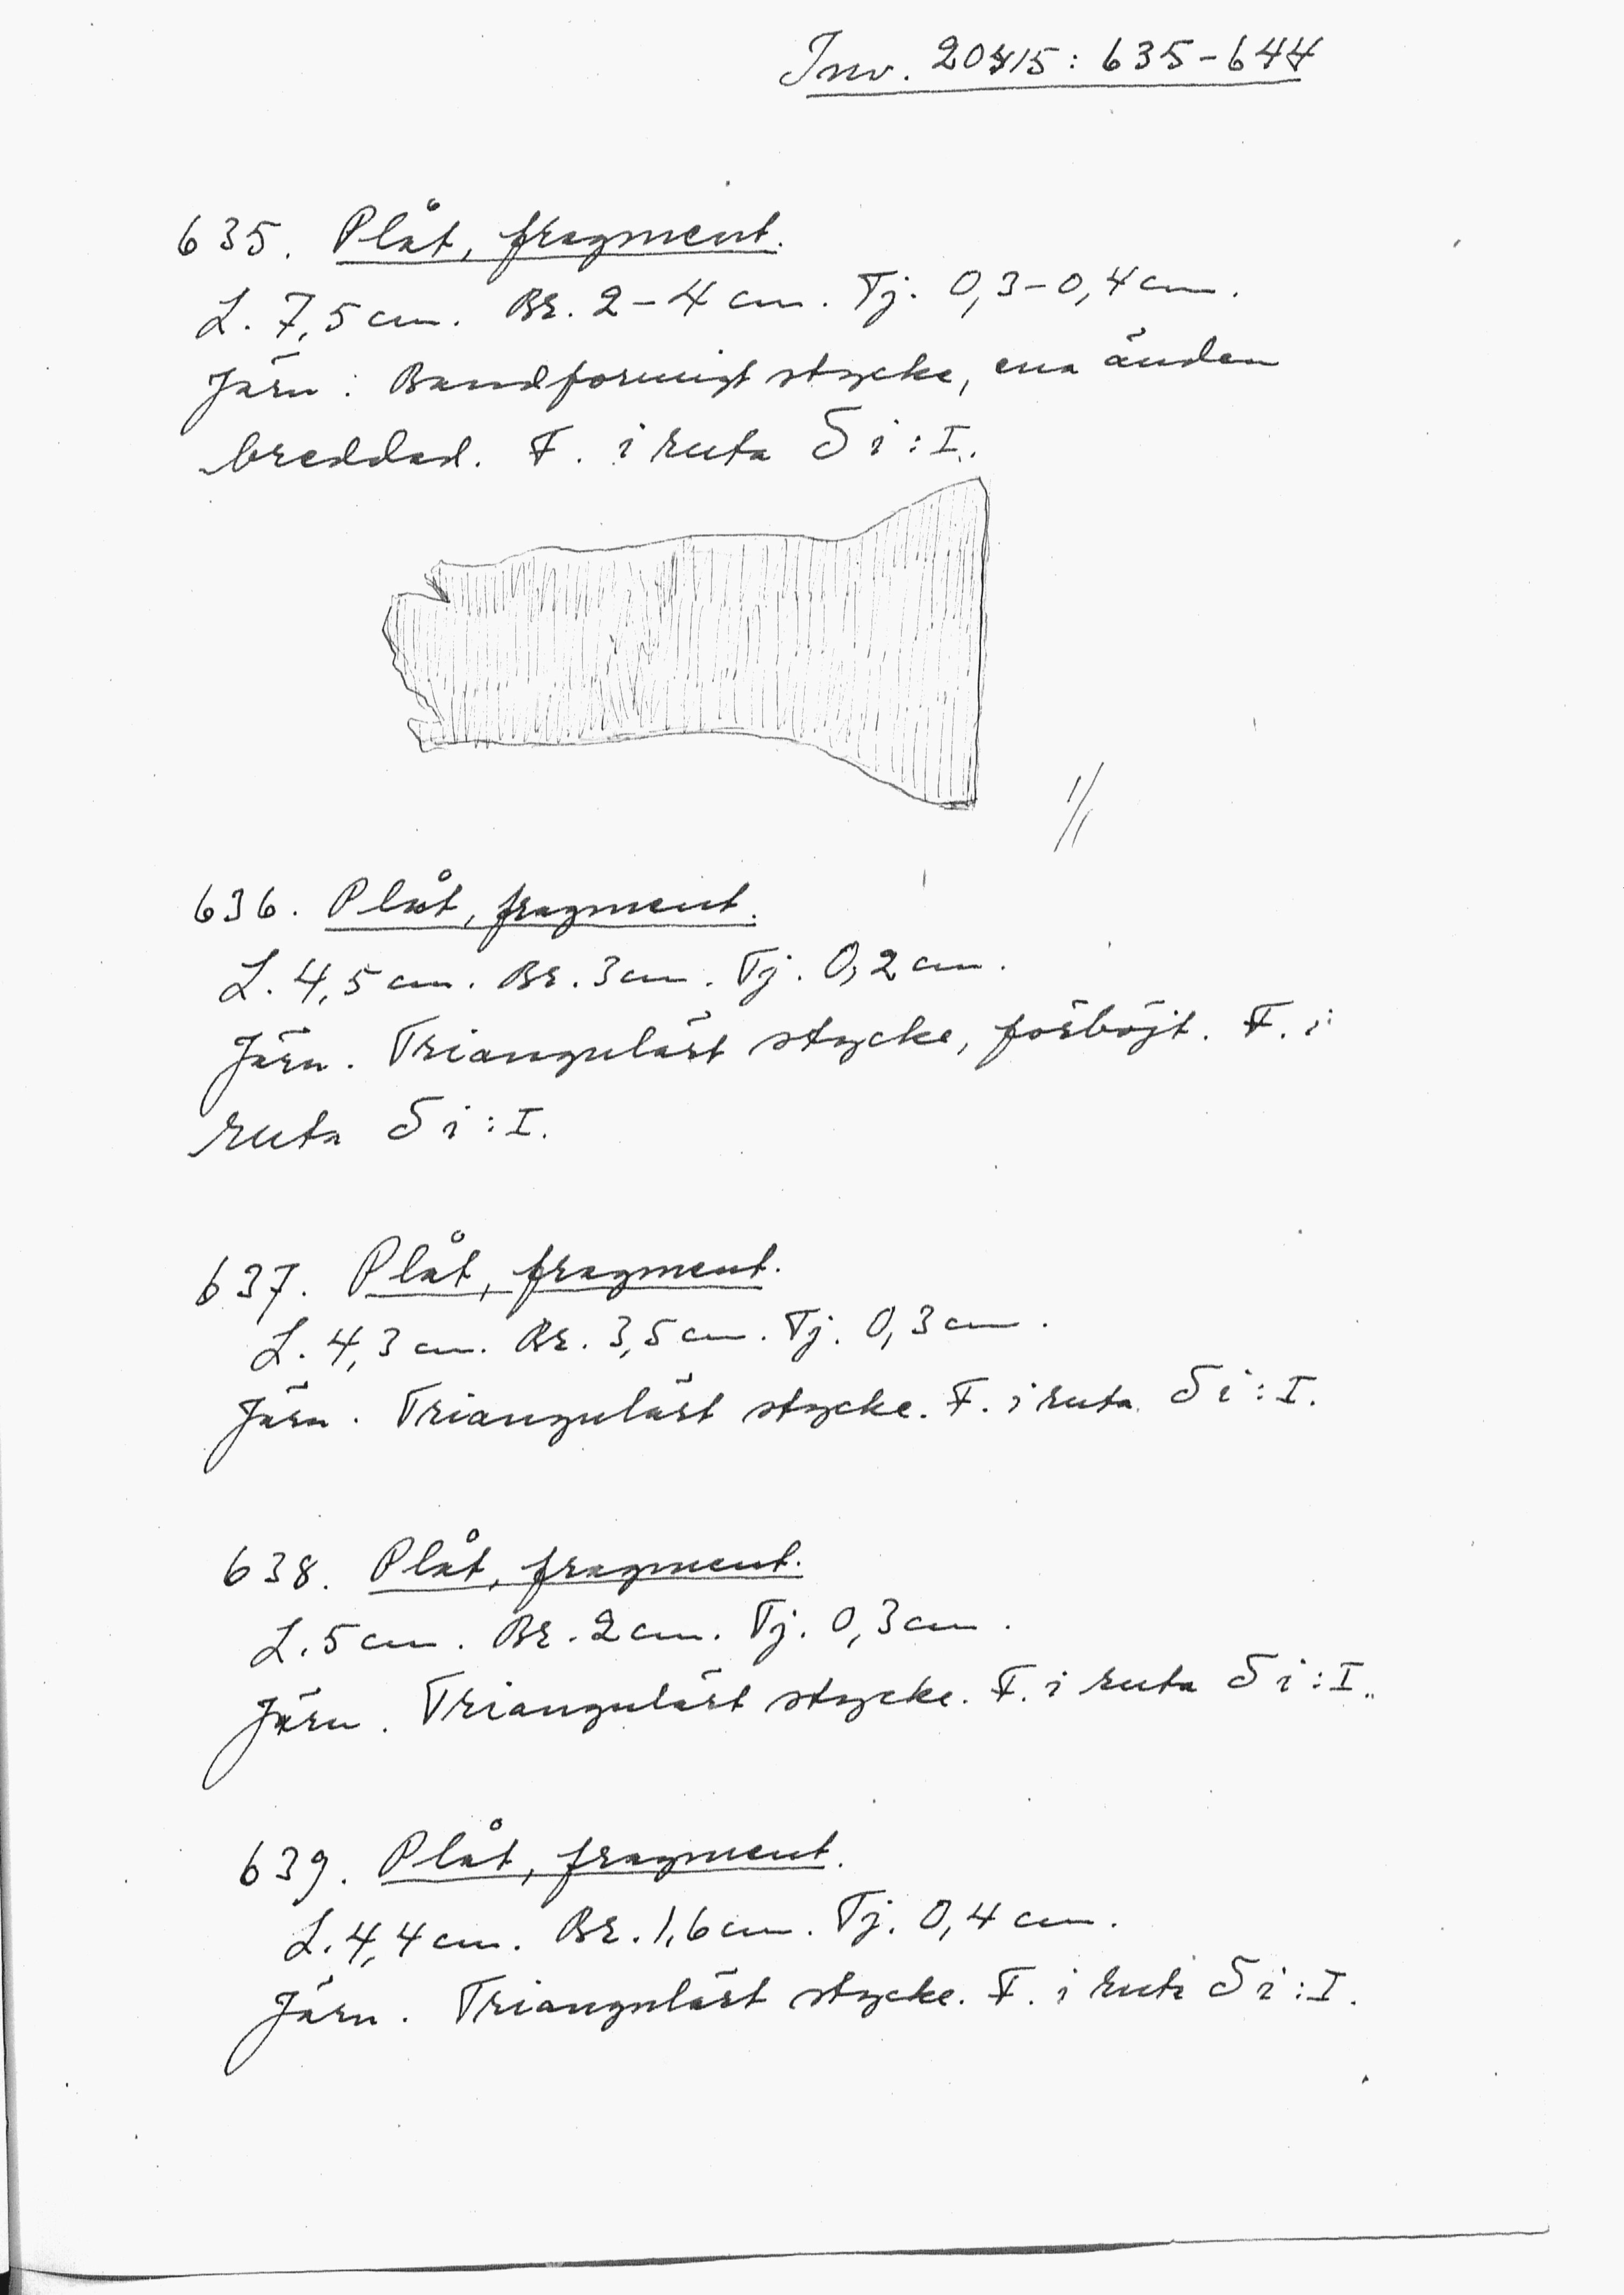 Inv. 20415: 635-644
635. Plåt, fragment.
L. 7,5 cm. Br. 2-4 cm. Tj. 0,3-0,4 cm.
Järn. Bandformigt stycke, ena änden
breddad. F. i ruta δ i : I.
1/1
636. Plåt, fragment.
L. 4,5 cm. Br. 3 cm. Tj. 0,2 cm.
Järn. Triangulärt stycke, förböjt. F. i
ruta δ i : I.
637. Plåt, fragment.
L. 4,3 cm. Br. 3,5 cm. Tj. 0,3 cm.
Järn. Triangulärt stycke. F. i ruta δ i : I.
638. Plåt, fragment.
L. 5 cm. Br. 2 cm. Tj. 0,3 cm.
Järn. Triangulärt stycke. F. i ruta δ i : I.
639. Plåt, fragment.
L. 4,4 cm. Br. 1,6 cm. Tj. 0,4 cm.
Järn. Triangulärt stycke. F. i ruta δ i : I.